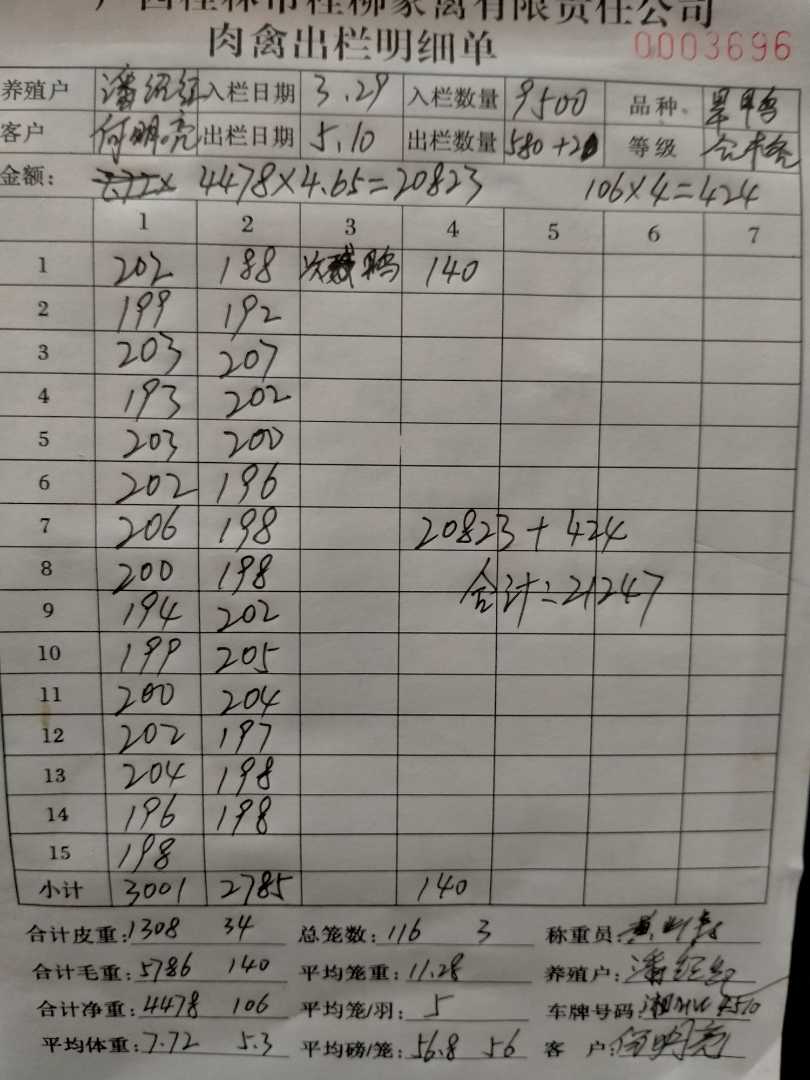 广西桂林市桂柳家禽有限责任公司
肉禽出栏明细单 0003696
养殖户 潘绍红 入栏日期 3.29 入栏数量 9500 品种
客户 何明亮 出栏日期 5.10 出栏数量 580+20 等级
金额: 4478×4.65=20823 106×4=424
1 2 3 4 5 6 7
1 202 188 次残鸭 140
2 199 192
3 203 207
4 193 202
5 203 200
6 202 196
7 206 198 20823+424
8 200 198 合计=21247
9 194 202
10 199 205
11 200 204
12 202 197
13 204 198
14 196 198
15 198
小计 3001 2785 140
合计皮重:1308 34 总笼数:116 3 称重员:
合计毛重:5786 140 平均笼重:11.28 养殖户:潘绍红
合计净重:4478 106 平均笼/羽:5 车牌号码:湘
平均体重:7.72 5.3 平均磅/笼:56.8 56 客 户:何明亮